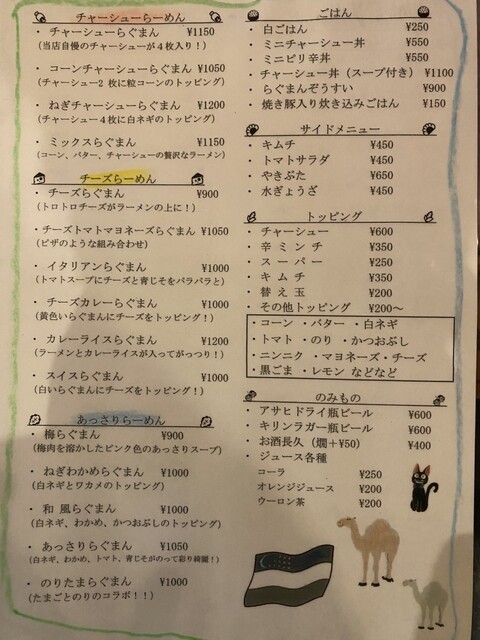 チャーシューらーめん
・ チャーシューらぐまん ¥1150
(当店自慢のチャーシューが4枚入り！)
・ コーンチャーシューらぐまん ¥1050
(チャーシュー2 枚に粒コーンのトッピング)
・ ねぎチャーシューらぐまん ¥1200
(チャーシュー4枚に白ネギのトッピング)
・ ミックスらぐまん ¥1150
(コーン、バター、チャーシューの贅沢なラーメン)
チーズらーめん
・ チーズらぐまん ¥900
(トロトロチーズがラーメンの上に！)
・チーズトマトマヨネーズらぐまん ¥1050
(ピザのような組み合わせ)
・ イタリアンらぐまん ¥1000
(トマトスープにチーズと青じそをパラパラと)
・ チーズカレーらぐまん ¥1000
(黄色いらぐまんにチーズをトッピング！)
・ カレーライスらぐまん ¥1200
(ラーメンとカレーライスが入ってがっつり！)
・ スイスらぐまん ¥1000
(白いらぐまんにチーズをトッピング！)
あっさりらーめん
・ 梅らぐまん ¥900
(梅肉を溶かしたピンク色のあっさりスープ)
・ ねぎわかめらぐまん ¥1000
(白ネギとワカメのトッピング)
・ 和 風らぐまん ¥1000
(白ネギ、わかめ、かつおぶしのトッピング)
・ あっさりらぐまん ¥1050
(白ネギ、わかめ、トマト、青じそがのって彩り綺麗！)
・ のりたまらぐまん ¥1000
(たまごとのりのコラボ！！)
ごはん
・ 白ごはん ¥250
・ ミニチャーシュー丼 ¥550
・ ミニピリ辛丼 ¥550
・ チャーシュー丼（スープ付き） ¥1100
・ らぐまんぞうすい ¥900
・ 焼き豚入り炊き込みごはん ¥150
サイドメニュー
・ キムチ ¥450
・ トマトサラダ ¥450
・ やきぶた ¥650
・ 水ぎょうざ ¥450
トッピング
・ チャーシュー ¥600
・ 辛ミンチ ¥350
・ スーパー ¥250
・ キムチ ¥350
・ 替え玉 ¥200
・ その他トッピング ¥200～
・コーン ・バター ・白ネギ
・トマト ・のり ・かつおぶし
・ニンニク ・マヨネーズ・チーズ
・黒ごま ・レモン などなど
のみもの
・ アサヒドライ瓶ビール ¥600
・ キリンラガー瓶ビール ¥600
・ お酒長久（燗＋¥50） ¥400
・ ジュース各種
コーラ ¥250
オレンジジュース ¥200
ウーロン茶 ¥200